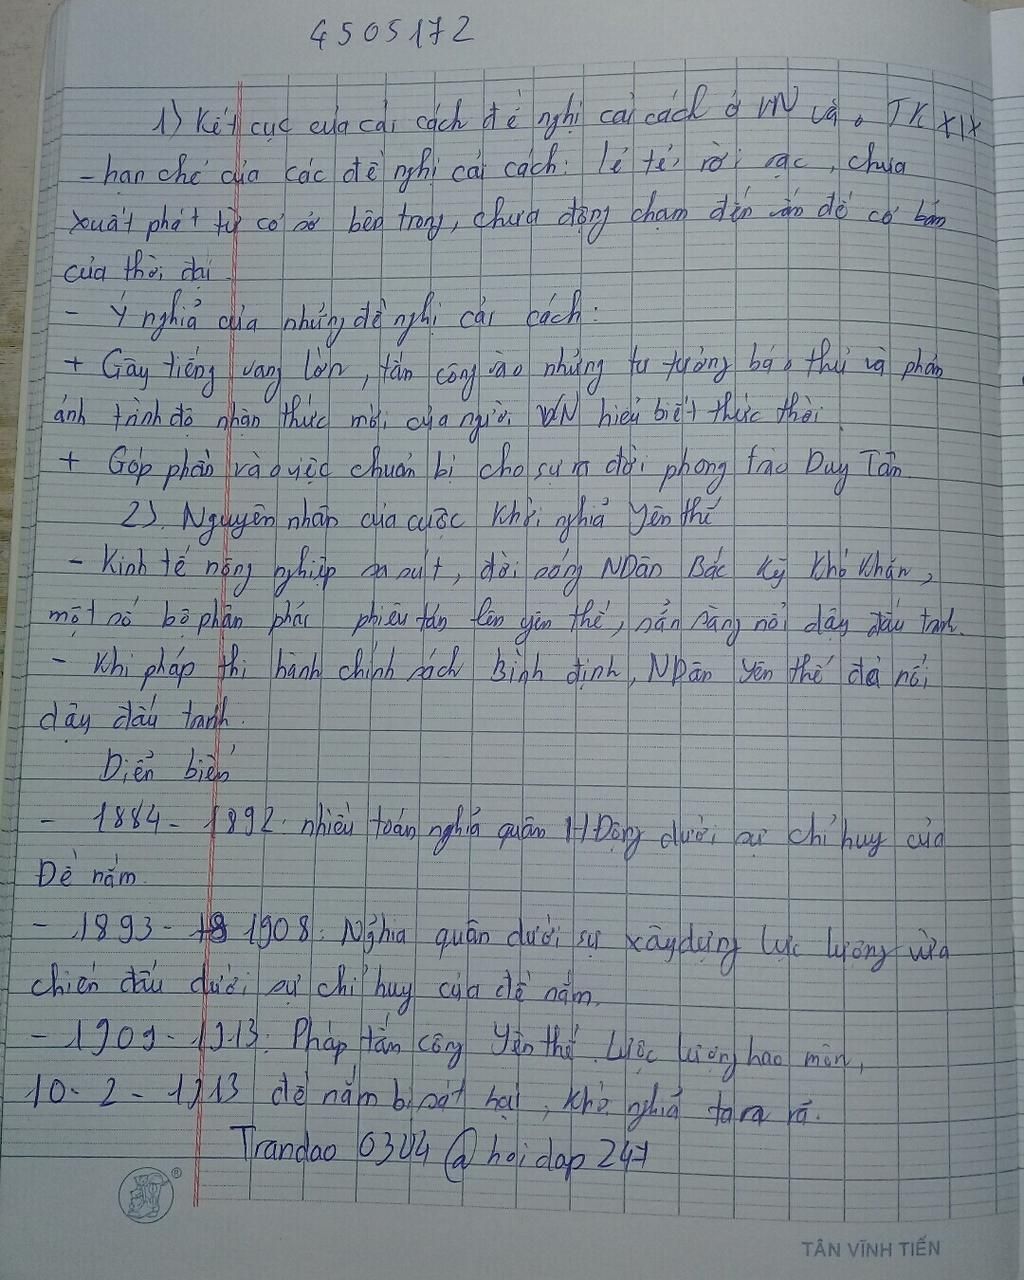 4505172
1) Kết cục của cải cách đề nghị cải cách ở VN và. TK XIX
- hạn chế của các đề nghị cải cách: lẻ tẻ, rời rạc, chưa
xuất phát từ cơ sở bên trong, chưa động chạm đến vấn đề cơ bản
của thời đại
- Ý nghiả của những đề nghị cải cách:
+ Gây tiếng vang lớn, tấn công vào những tư tưởng bảo thủ và phản
ánh trình độ nhận thức mới của người VN hiểu biết thức thời
+ Góp phần vào việc chuẩn bị cho sự ra đời phong trào Duy Tân
2). Nguyên nhân của cuộc khởi nghiả Yên thế
- Kinh tế nông nghiệp sa sút, đời sống NDân Bắc Kỳ khó khăn,
một số bộ phận phải phiêu tán lên yên thế, sẳn sàng nổi dậy đấu tranh.
- Khi pháp thi hành chính sách bình định, NDân Yên thế đả nổi
dậy đấu tranh.
Diển biến
- 1884 - 1892: nhiều toán nghiả quân HĐộng dưới sự chỉ huy của
Đề nắm.
- 1893 - 1908: Nghỉa quân dưới sự xây dựng lực lượng vừa
chiến đấu dưới sự chỉ huy của đề nắm.
- 1909 - 1913: Pháp tấn công Yên thế. Lược lượng hao mòn,
10 - 2 - 1913 đề nắm bị sát hại, khở nghiả tan rả.
Trandao 0344 @ hoi dap 247
®
TÂN VĨNH TIẾN